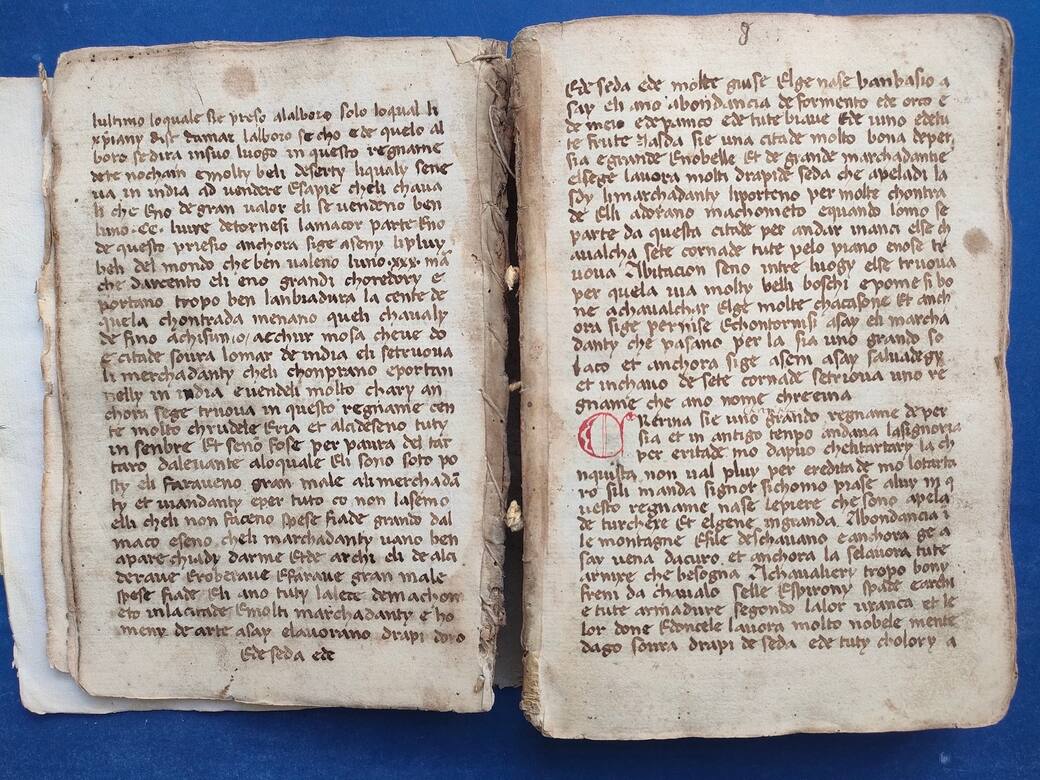 lultimo loquale sie preso alalboro solo loqual li
xpiany dise damar lalboro secho e de quelo al
boro sedira insuo luogo in questo regname
dete nochain e molty beli deserty liqualy sene
va in india ad vendere Esapie cheli chava
li che Eno de gran valor eli se vendeno ben
luno .CC. luire detornesi lamacor parte Eno
de questo priesio anchora sige aseny lipluy
beli del mondo che ben valeno luno .xxx. mā
che darcento eli eno grandi choredory E
portano tropo ben lanbiadura la cente de
quela chontrada menano queli chavaly
de fino achisi mosa cheue do
e citade soura lomar de india eli setruova
li merchadanty cheli chonprano eportan
nelly in india evendeli molto chary an
chora sege truova in questo regname cen
te molto chrudele Eria et alcideseno tuty
in senbre Et seno fose per paura del tar
taro dalevante aloquale Eli sono soto po
sty eli faraveno gran male ali merchadā
ty et viandanty eper tuto co non lasemo
elli cheli non faceno spese fiade grando dal
maco eseno cheli marchadanty vano ben
aparechiady darme Etde archi eli de alci
derave Eroberave Efarave gran male
spese fiade Eli ano tuty lalece demachom
eto inlacitade Emolti marchadanty e ho
meny de arte asay elavorano drapi doro
Ede seda ede
8
Ede seda Ede molte guise Elge nase banbasio a
say eli ano abondancia de formento ede orco e
de meio edepanico ede tute biave Ede vino edetu
te frute Jasda sie una citade molto bona deper
sia egrande Enobelle Et de grande marchadantie
Elsege lavora molti drapi de seda che apeladi la
sdy limarchadanty liporteno per molte chontra
de Elli adorano machometo equando lomo se
parte da questa citade per andar inanci else ch
avalcha sete cornade tute pelo piano enose tr
vova Abitacion seno intre luogy else truova
per quela via molty belli boschi e pome si bo
ne achavalchar Elge molte chacasone Et anch
ora sige pernise Echontornisi asay eli marcha
danty che pasano per la sia uno grando so
laco et anchora sige asem asay salvadegy
et inchavo de sete cornade setrvova uno re
gname che ano nome chrerina
CRerina sie uno grando regname de per
sia et in antigo tenpo andava lasignoria
per eritade mo dapuo chelitartary la ch
nquista non val pluy per eredita de mo lotarta
ro sili manda signor sichomo piase aluy in q
vesto regname nase lepiere che sono apela
de turchere Et elgene ingranda Abondancia i
le montagne Efile deschavano e anchora ge a
say vena dacuro et anchora la selavora tute
arnixe che besogna Achavaliery tropo bony
freni da chavalo selle Espirony spade earchi
e tute armadure segondo lalor vxanca et le
lor done Edoncele lavora molto nobele mente
dago soura drapi de seda ede tuty cholory a